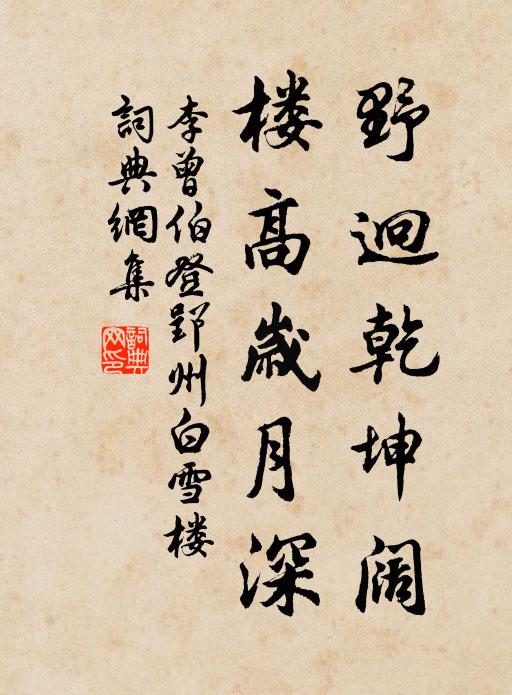 野迥乾坤阔
楼高歲月深
李曾伯登郢州白雪楼
詞典網集
詞典网印